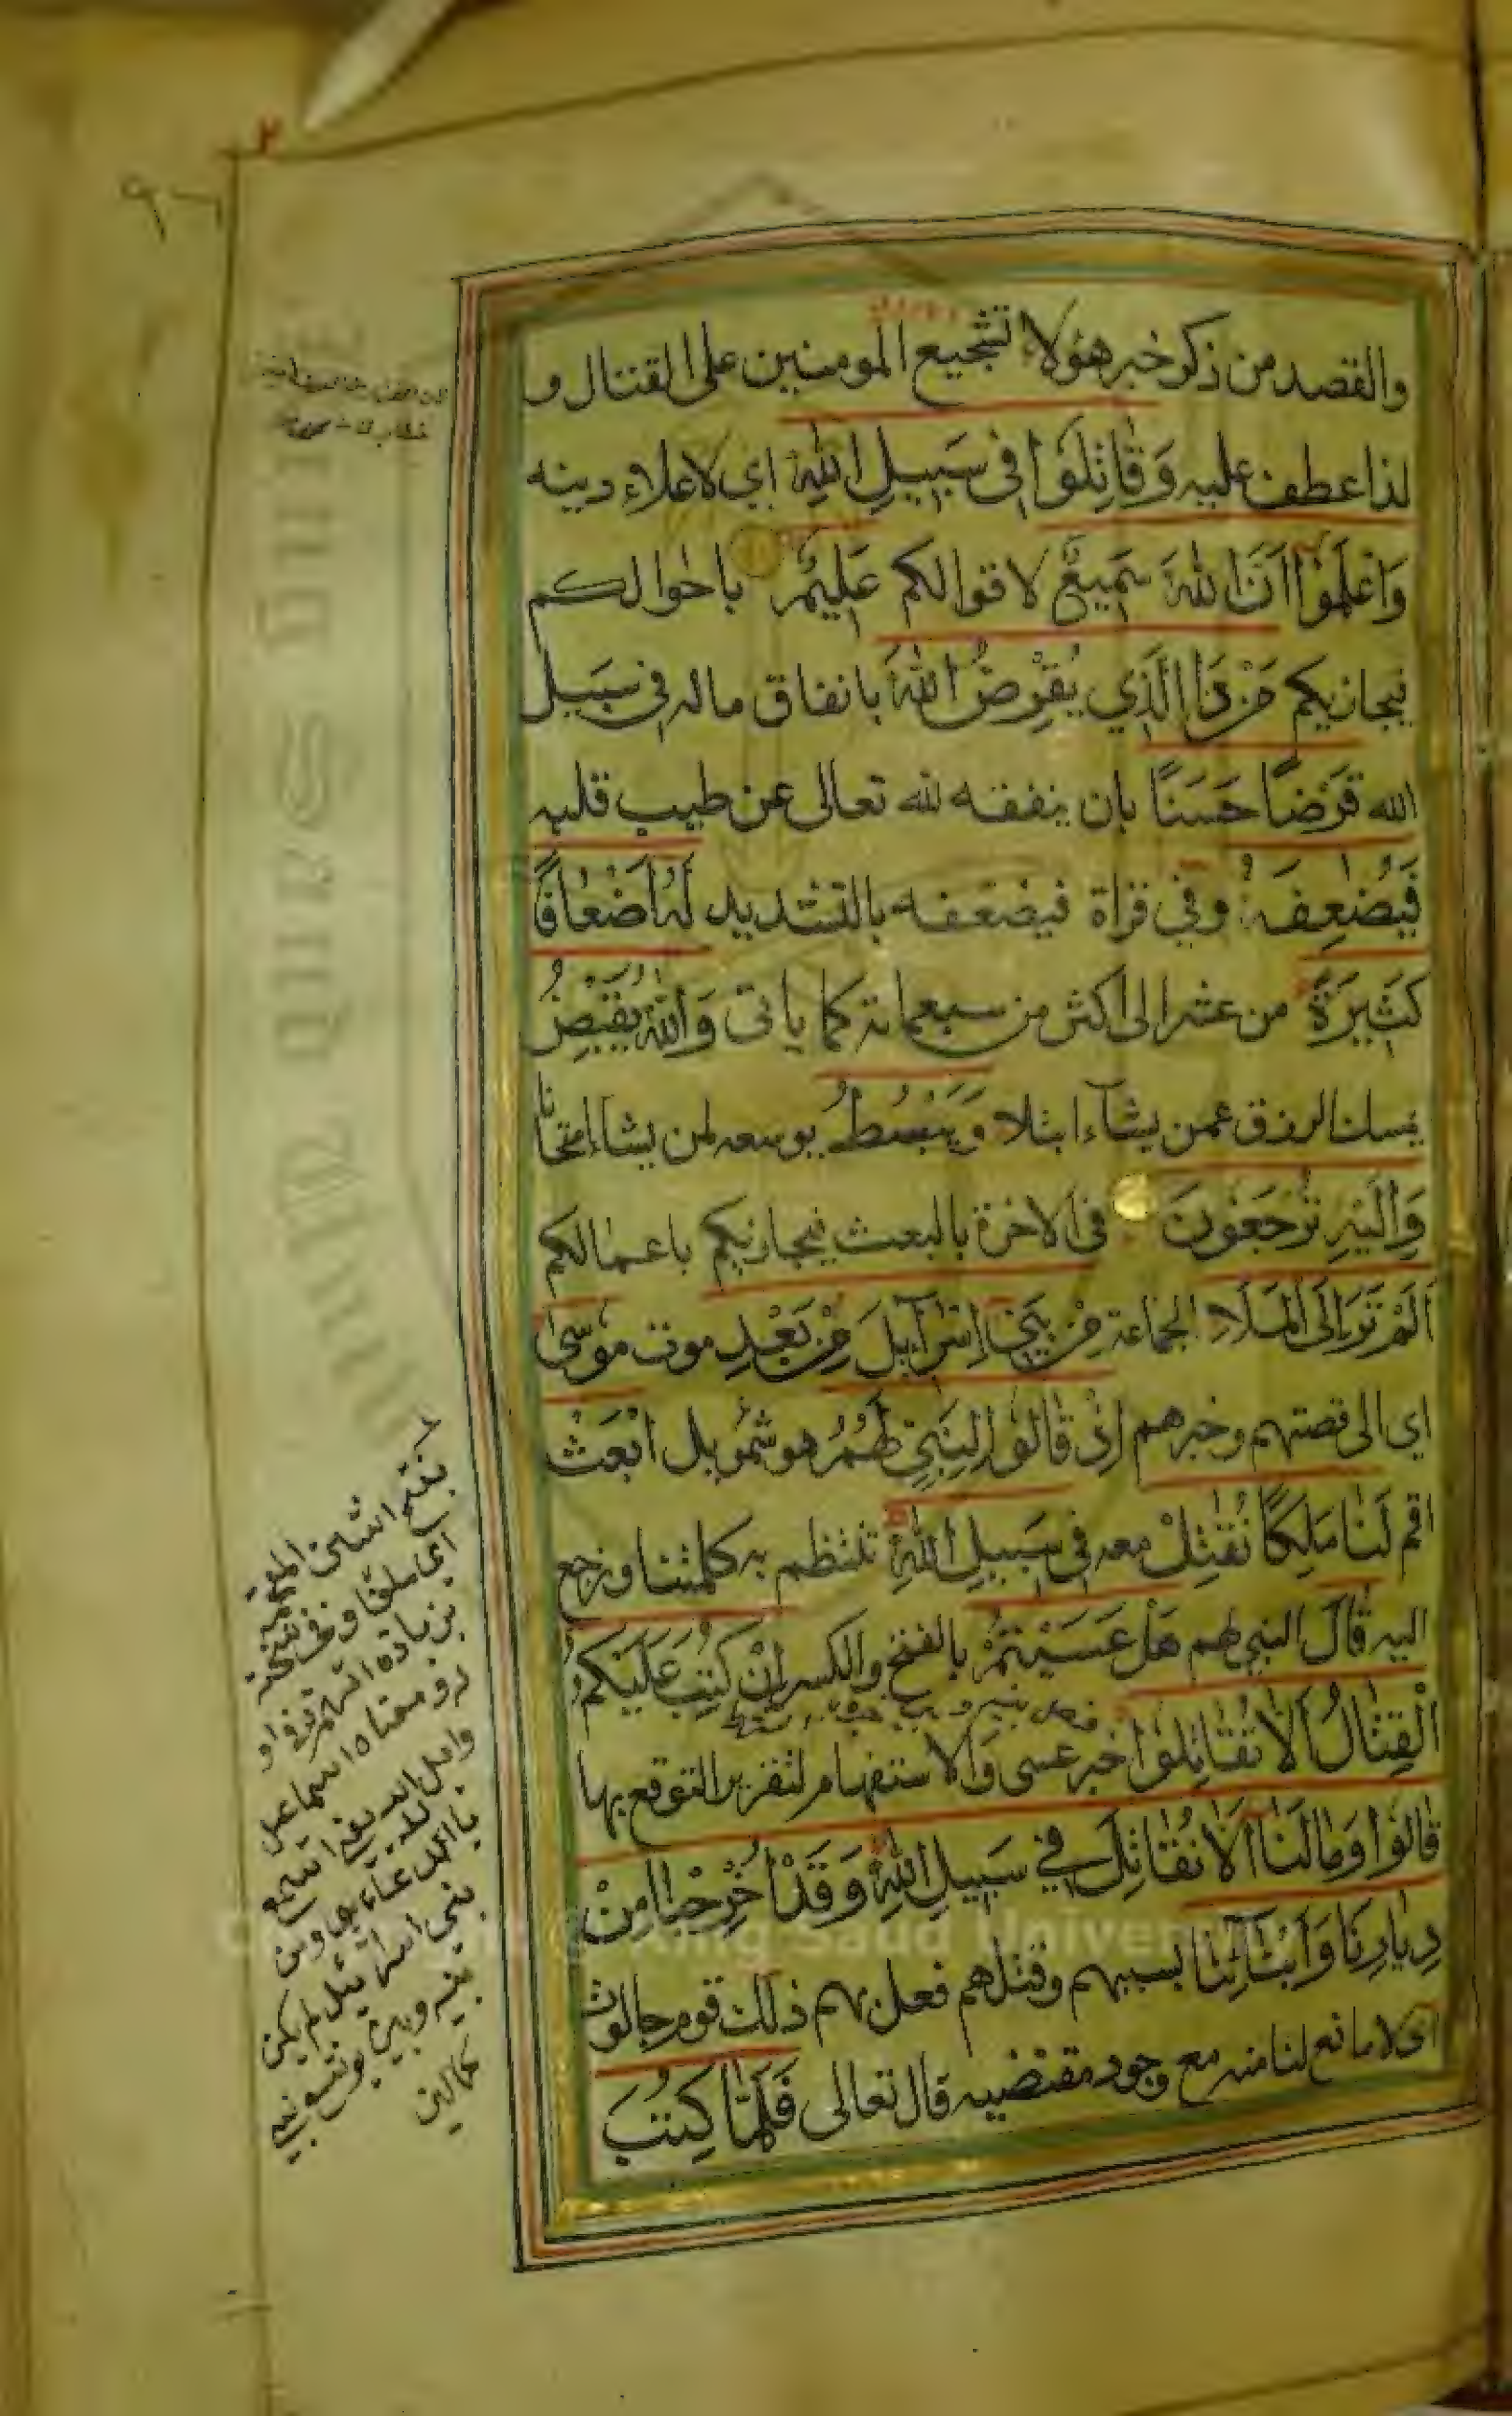 والقصد من ذكر خبر هؤلاء تشجيع المومنين على القتال و
لذا عطف عليه وَقَاتِلُوا فِي سَبِيلِ اللَّهِ اي لاعلاء دينه
وَاعْلَمُوا أَنَّ اللَّهَ سَمِيعٌ لاقوالكم عَلِيمٌ باحوالكم
فيجازيكم مَنْ ذَا الَّذِي يُقْرِضُ اللَّهَ بانفاق ماله في سبيل
الله قَرْضًا حَسَنًا بان ينفقه لله تعالى عن طيب قلبه
فَيُضٰعِفَهُ وفي قراة فيضعفه بالتشديد لَهُ أَضْعَافًا
كَثِيرَةً من عشر الى اكثر من سبعماية كما ياتى وَاللَّهُ يَقْبِضُ
يمسك الرزق عمن يشاء ابتلا وَيَبْسُطُ يوسعه لمن يشاء امتحانا
وَإِلَيْهِ تُرْجَعُونَ فى الاخرة بالبعث فيجازيكم باعمالكم
أَلَمْ تَرَ إِلَى الْمَلَإِ الجماعة مِنْ بَنِي إِسْرَآئِيلَ مِنْ بَعْدِ موت مُوسَى
اي الى قصتهم وخبرهم اِذْ قَالُوا لِنَبِيٍّ لَهُمُ هو شمويل ابْعَثْ
اقم لَنَا مَلِكًا نُقٰتِلْ معه فِي سَبِيلِ اللَّهِ تنتظم به كلمتنا ونرجع
اليه قَالَ النبي لهم هَلْ عَسَيْتُمْ بالفتح والكسر إِنْ كُتِبَ عَلَيْكُمُ
الْقِتَالُ أَلَّا تُقَاتِلُوا خبر عسى والاستفهام لتقرير التوقع بها
قَالُوا وَمَا لَنَا أَلَّا نُقَاتِلَ فِي سَبِيلِ اللَّهِ وَقَدْ أُخْرِجْنَا مِنْ
دِيَارِنَا وَأَبْنَآئِنَا بسببهم وقتلهم فعل بهم ذلك قوم جالوت
اى لا مانع لنا منه مع وجود مقتضيه قال تعالى فَلَمَّا كُتِبَ
بفتح الشين المعجمة
بزيادة
و معناه اسماعيل
بنى اسرائيل لم يكن
بينه وبين يوشع نبي
كمالين